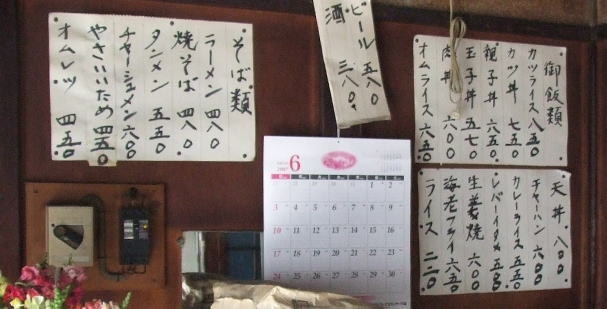 そば類
ラーメン 四八〇
焼そば 四八〇
タンメン 五五〇
チャーシュメン 六〇〇
やさいいため 四五〇
オムレツ 四五〇
ビール 五八〇
酒 三八〇
御飯類
カツライス 八五〇
カツ丼 七五〇
親子丼 六五〇
玉子丼 五七〇
肉丼 六〇〇
オムライス 六五〇
天丼 八〇〇
チャーハン 六〇〇
カレーライス 五五〇
レバーイタメ 五五〇
生姜焼 六〇〇
海老フライ 六五〇
ライス 二二〇
6
1 2
3 4 5 6 7 8 9
10 11 12 13 14 15 16
17 18 19 20 21 22 23
24 25 26 27 28 29 30